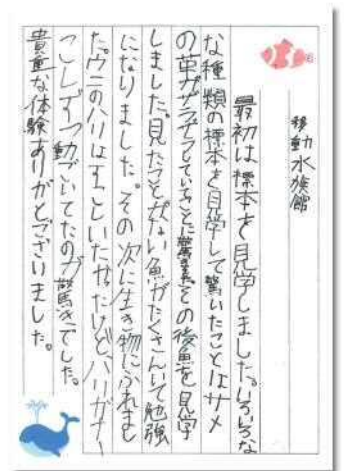 移動水族館
最初は標本を見学しました。いろいろな
な種類の標本を見学して驚いたことはサメ
の革がザラザラしていることに その後魚を見学
しました。見たことがない魚がたくさんいて勉強
になりました。その次に生き物にふれまし
た。ウニのハリはすこしいたかっただけど、ハリが
こしずつ動ごいてたのが驚きでした。
貴重な体験ありがとございました。